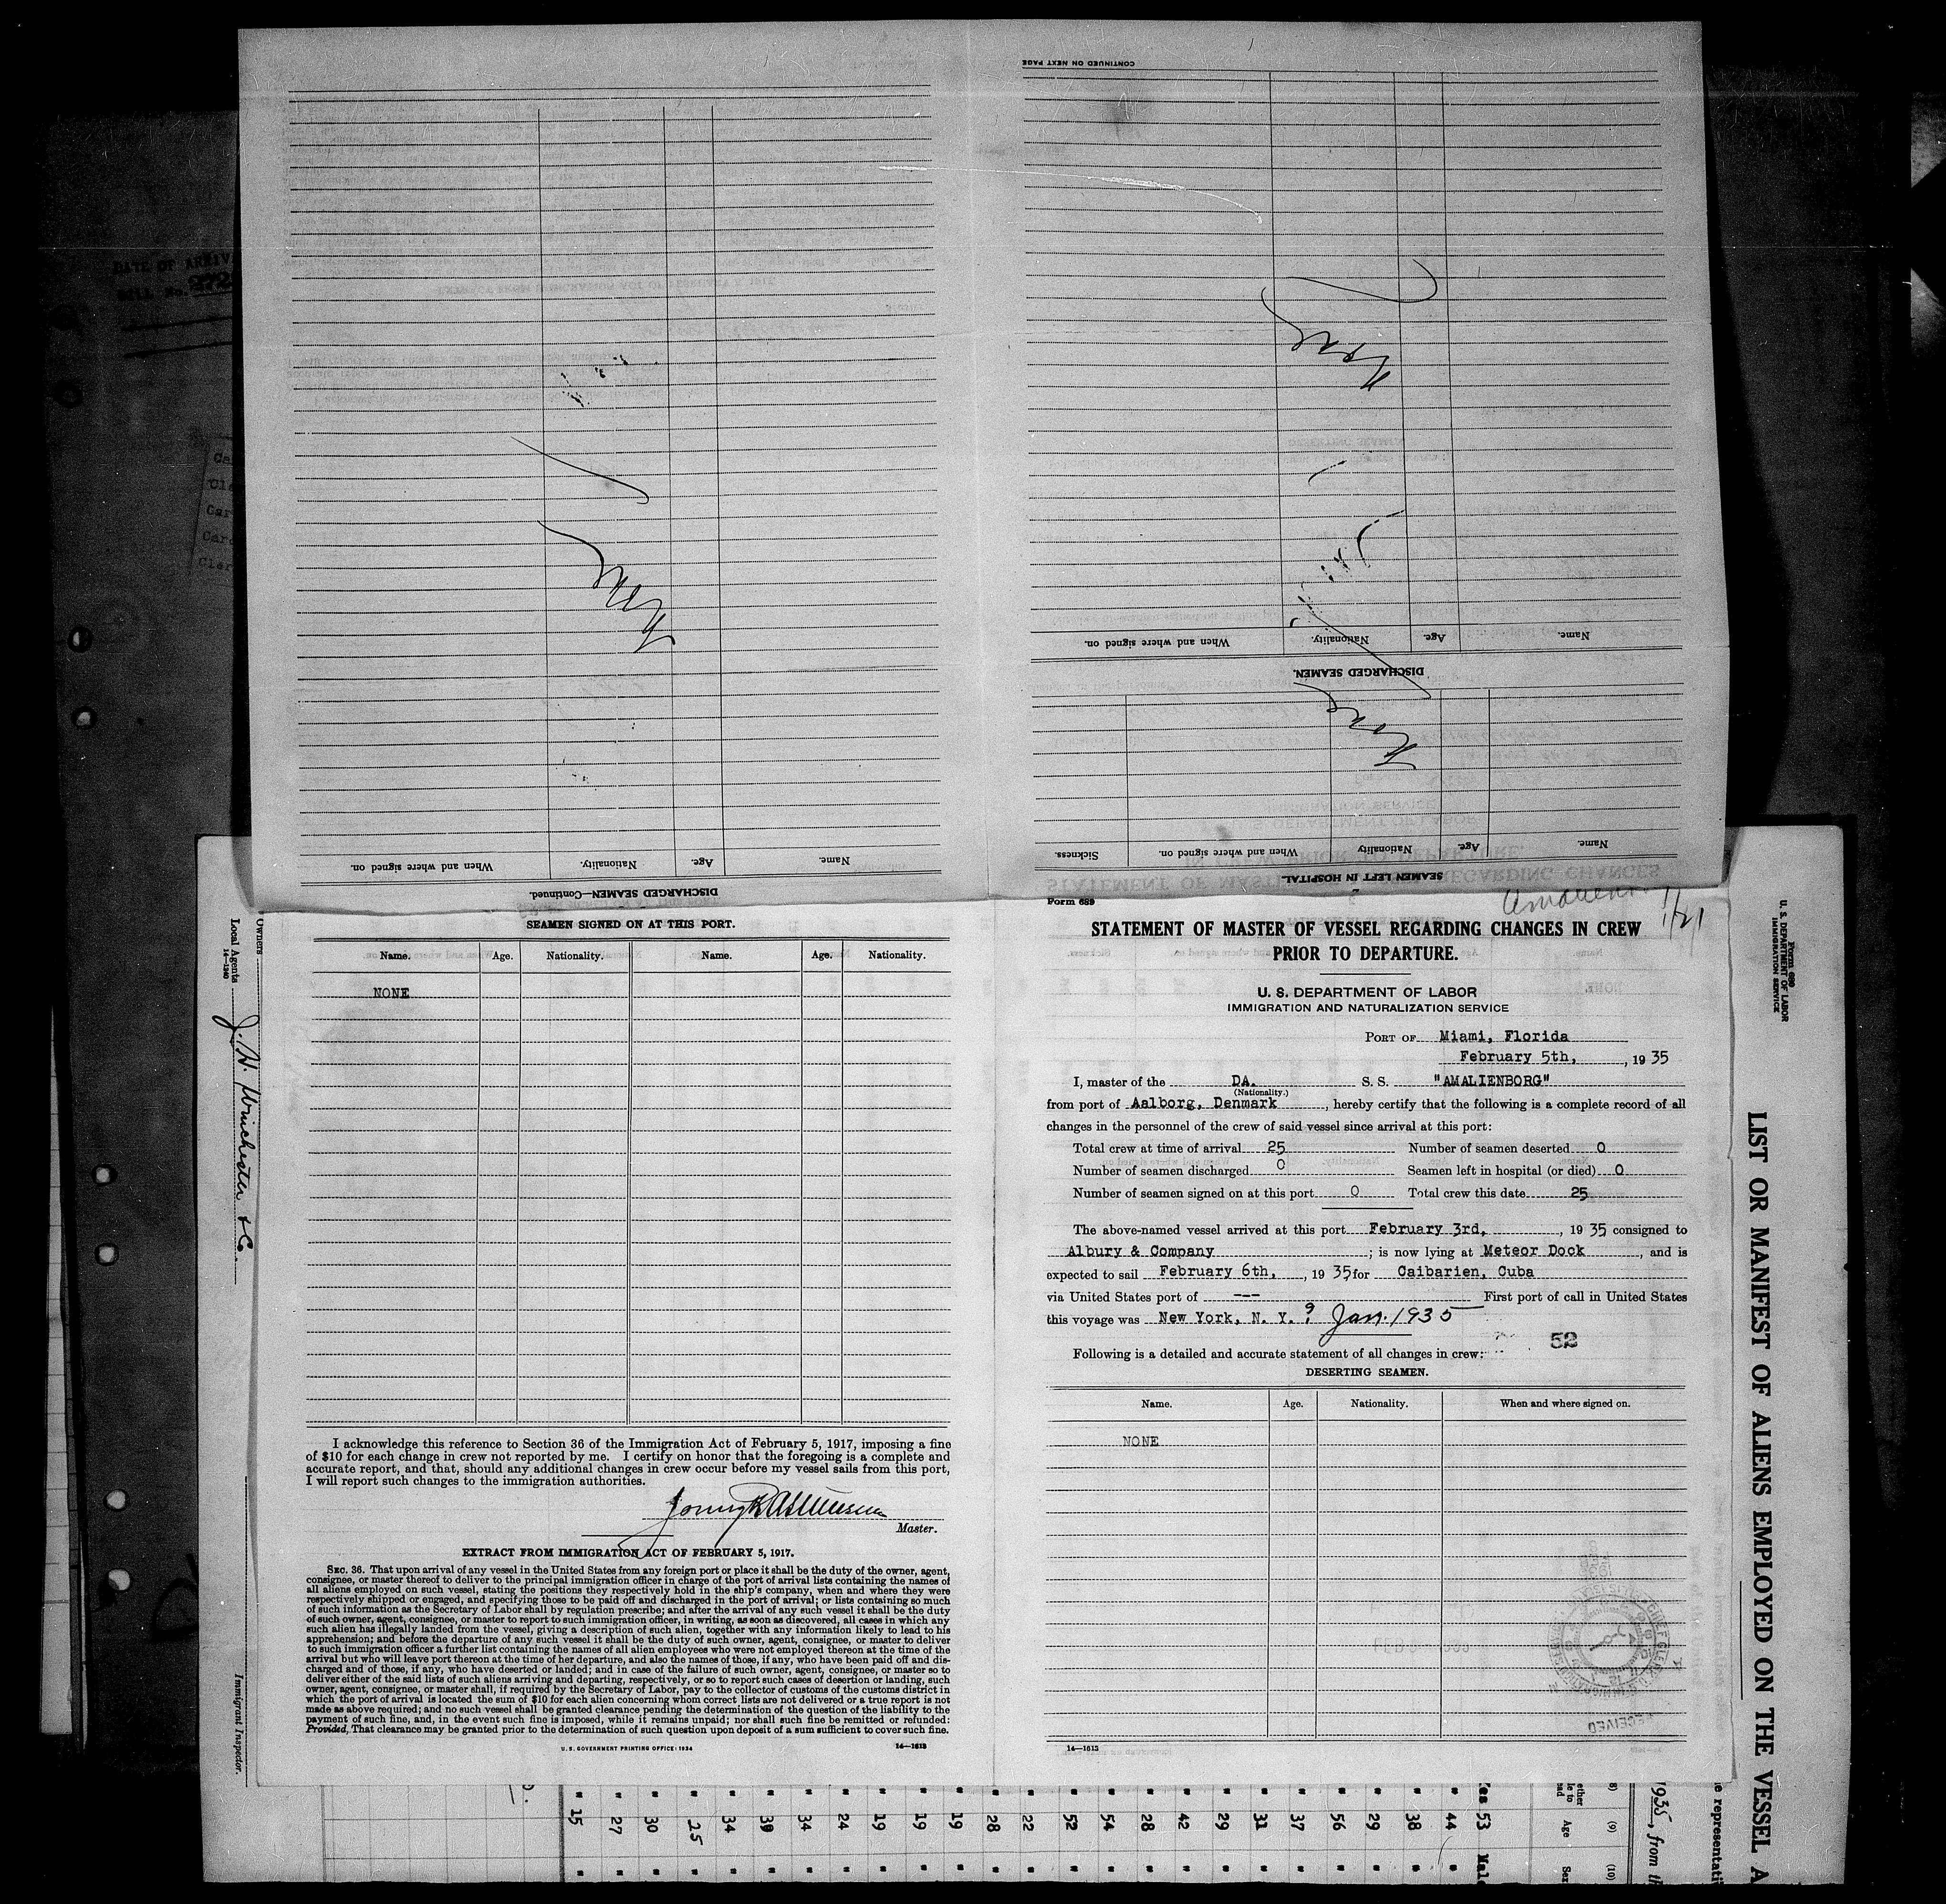 CONTINUED ON NEXT PAGE
None
None
Name.
Age.
Nationality.
When and where signed on.
DISCHARGED SEAMEN.
None
Name.
Age.
Nationality
When and where signed on.
Sickness.
SEAMEN LEFT IN HOSPITAL.
Name.
Age.
Nationality.
When and where signed on.
DISCHARGED SEAMEN—Continued.
SEAMEN SIGNED ON AT THIS PORT.
Name. Age. Nationality. Name. Age. Nationality.
NONE
I acknowledge this reference to Section 36 of the Immigration Act of February 5, 1917, imposing a fine
of $10 for each change in crew not reported by me. I certify on honor that the foregoing is a complete and
accurate report, and that, should any additional changes in crew occur before my vessel sails from this port,
I will report such changes to the immigration authorities.
Master.
EXTRACT FROM IMMIGRATION ACT OF FEBRUARY 5, 1917.
SEC. 36. That upon arrival of any vessel in the United States from any foreign port or place it shall be the duty of the owner, agent,
consignee, or master thereof to deliver to the principal immigration officer in charge of the port of arrival lists containing the names of
all aliens employed on such vessel, stating the positions they respectively hold in the ship's company, when and where they were
respectively shipped or engaged, and specifying those to be paid off and discharged in the port of arrival; or lists containing so much
of such information as the Secretary of Labor shall by regulation prescribe; and after the arrival of any such vessel it shall be the duty
of such owner, agent, consignee, or master to report to such immigration officer, in writing, as soon as discovered, all cases in which any
such alien has illegally landed from the vessel, giving a description of such alien, together with any information likely to lead to his
apprehension; and before the departure of any such vessel it shall be the duty of such owner, agent, consignee, or master to deliver
to such immigration officer a further list containing the names of all alien employees who were not employed thereon at the time of the
arrival but who will leave port thereon at the time of her departure, and also the names of those, if any, who have been paid off and dis-
charged and of those, if any, who have deserted or landed; and in case of the failure of such owner, agent, consignee, or master so to
deliver either of the said lists of such aliens arriving and departing, respectively, or so to report such cases of desertion or landing, such
owner, agent, consignee, or master shall, if required by the Secretary of Labor, pay to the collector of customs of the customs district in
which the port of arrival is located the sum of $10 for each alien concerning whom correct lists are not delivered or a true report is not
made as above required; and no such vessel shall be granted clearance pending the determination of the question of the liability to the
payment of such fine, and, in the event such fine is imposed, while it remains unpaid; nor shall such fine be remitted or refunded:
Provided, That clearance may be granted prior to the determination of such question upon deposit of a sum sufficient to cover such fine.
U. S. GOVERNMENT PRINTING OFFICE: 1934
14—1613
Form 689
STATEMENT OF MASTER OF VESSEL REGARDING CHANGES IN CREW
PRIOR TO DEPARTURE.
U. S. DEPARTMENT OF LABOR
IMMIGRATION AND NATURALIZATION SERVICE
PORT OF Miami, Florida
February 5th, , 19 35
I, master of the DA. S. S. "AMALIENBORG"
(Nationality.)
from port of Aalborg, Denmark , hereby certify that the following is a complete record of all
changes in the personnel of the crew of said vessel since arrival at this port:
Total crew at time of arrival 25 Number of seamen deserted 0
Number of seamen discharged 0 Seamen left in hospital (or died) 0
Number of seamen signed on at this port 0 Total crew this date 25
The above-named vessel arrived at this port February 3rd, , 19 35 consigned to
Albury & Company ; is now lying at Meteor Dock , and is
expected to sail February 6th, , 19 35, for Caibarien, Cuba
via United States port of --- First port of call in United States
this voyage was New York, N. Y. ? Jan. 1935
52
Following is a detailed and accurate statement of all changes in crew:
DESERTING SEAMEN.
Name. Age. Nationality. When and where signed on.
NONE
14—1613
Owners
Local Agents J. W. Winchester & Co.
14—1240
Immigrant Inspector.
Form 689
U. S. DEPARTMENT OF LABOR
IMMIGRATION SERVICE
LIST OR MANIFEST OF ALIENS EMPLOYED ON THE VESSEL A
1935, from th
e representati
(9)
(10)
Age
Sex
15 27 30 25 34 39 34 24 19 19 19 28 22 52 54 28 42 29 31 37 56 29 38 44 53
DATE OF ARRIV